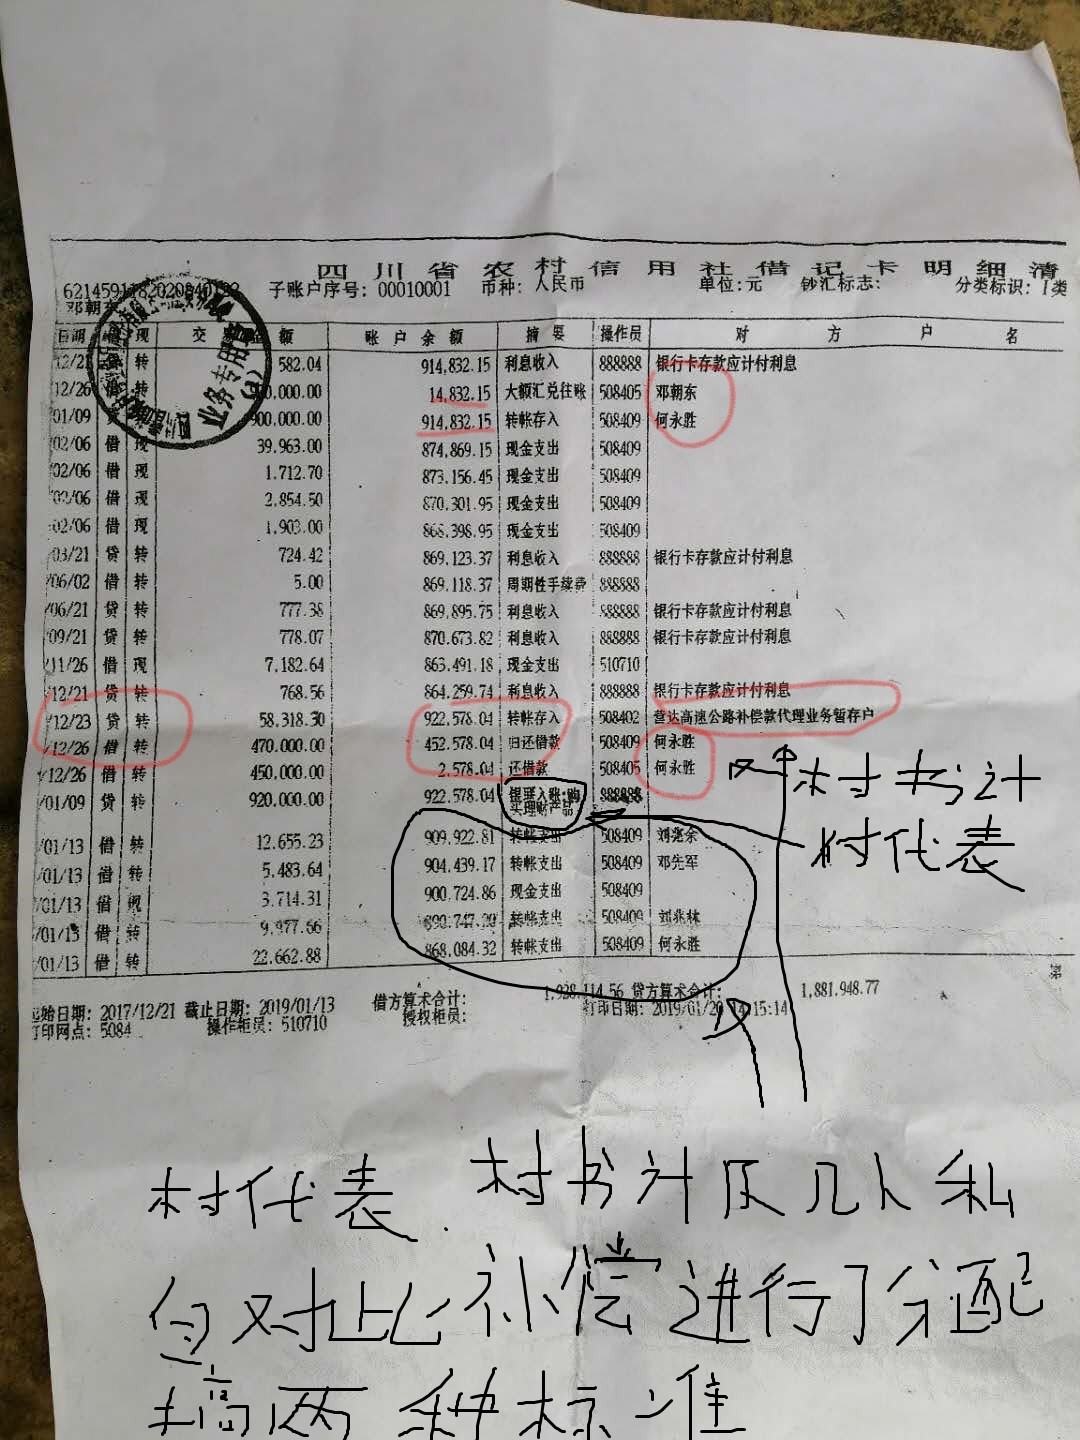 四川省农村信用社借记卡明细清
6214591182020840192 子账户序号: 00010001 币种: 人民币 单位:元 钞汇标志: 分类标识: I类
邓朝东
日期 借 现 交 金 额 账 户 余 额 摘 要 操作员 对 方 户 名
12/21 转 582.04 914,832.15 利息收入 888888 银行卡存款应计付利息
12/26 转 00,000.00 14,832.15 大额汇兑往账 508405 邓朝东
01/09 贷 转 900,000.00 914,832.15 转帐存入 508409 何永胜
02/06 借 现 39,963.00 874,869.15 现金支出 508409
02/06 借 现 1,712.70 873,156.45 现金支出 508409
02/06 借 现 2,854.50 870,301.95 现金支出 508409
02/06 借 现 1,903.00 868,398.95 现金支出 508409
03/21 贷 转 724.42 869,123.37 利息收入 888888 银行卡存款应计付利息
/06/02 借 转 5.00 869,118.37 周期性手续费 888888
/06/21 贷 转 777.38 869,895.75 利息收入 888888 银行卡存款应计付利息
/09/21 贷 转 778.07 870,673.82 利息收入 888888 银行卡存款应计付利息
/11/26 借 现 7,182.64 863,491.18 现金支出 510710
/12/21 贷 转 768.56 864,259.74 利息收入 888888 银行卡存款应计付利息
/12/23 贷 转 58,318.30 922,578.04 转帐存入 508402 营达高速公路补偿款代理业务暂存户
/12/26 借 转 470,000.00 452,578.04 归还借款 508409 何永胜
/12/26 借 转 450,000.00 2,578.04 还借款 508405 何永胜
/01/09 贷 转 920,000.00 922,578.04 银证入账:购买理财产品 888888
/01/13 借 转 12,655.23 909,922.81 转帐支出 508409
/01/13 借 转 5,483.64 904,439.17 转帐支出 508409 邓先军
/01/13 借 现 3,714.31 900,724.86 现金支出 508409
/01/13 借 转 9,977.66 890,747.20 转帐支出 508409 刘兆林
/01/13 借 转 22,662.88 868,084.32 转帐支出 508409 何永胜
起始日期: 2017/12/21 截止日期: 2019/01/13 借方算术合计: 1,928,114.56 贷方算术合计: 1,881,948.77
打印网点: 5084 操作柜员: 510710 授权柜员: 打印日期: 2019/01/20 14:15:14
业务专用章
村书计
村代表
村代表、村书计及几人私
自对比补偿进行了分配
搞两种标准